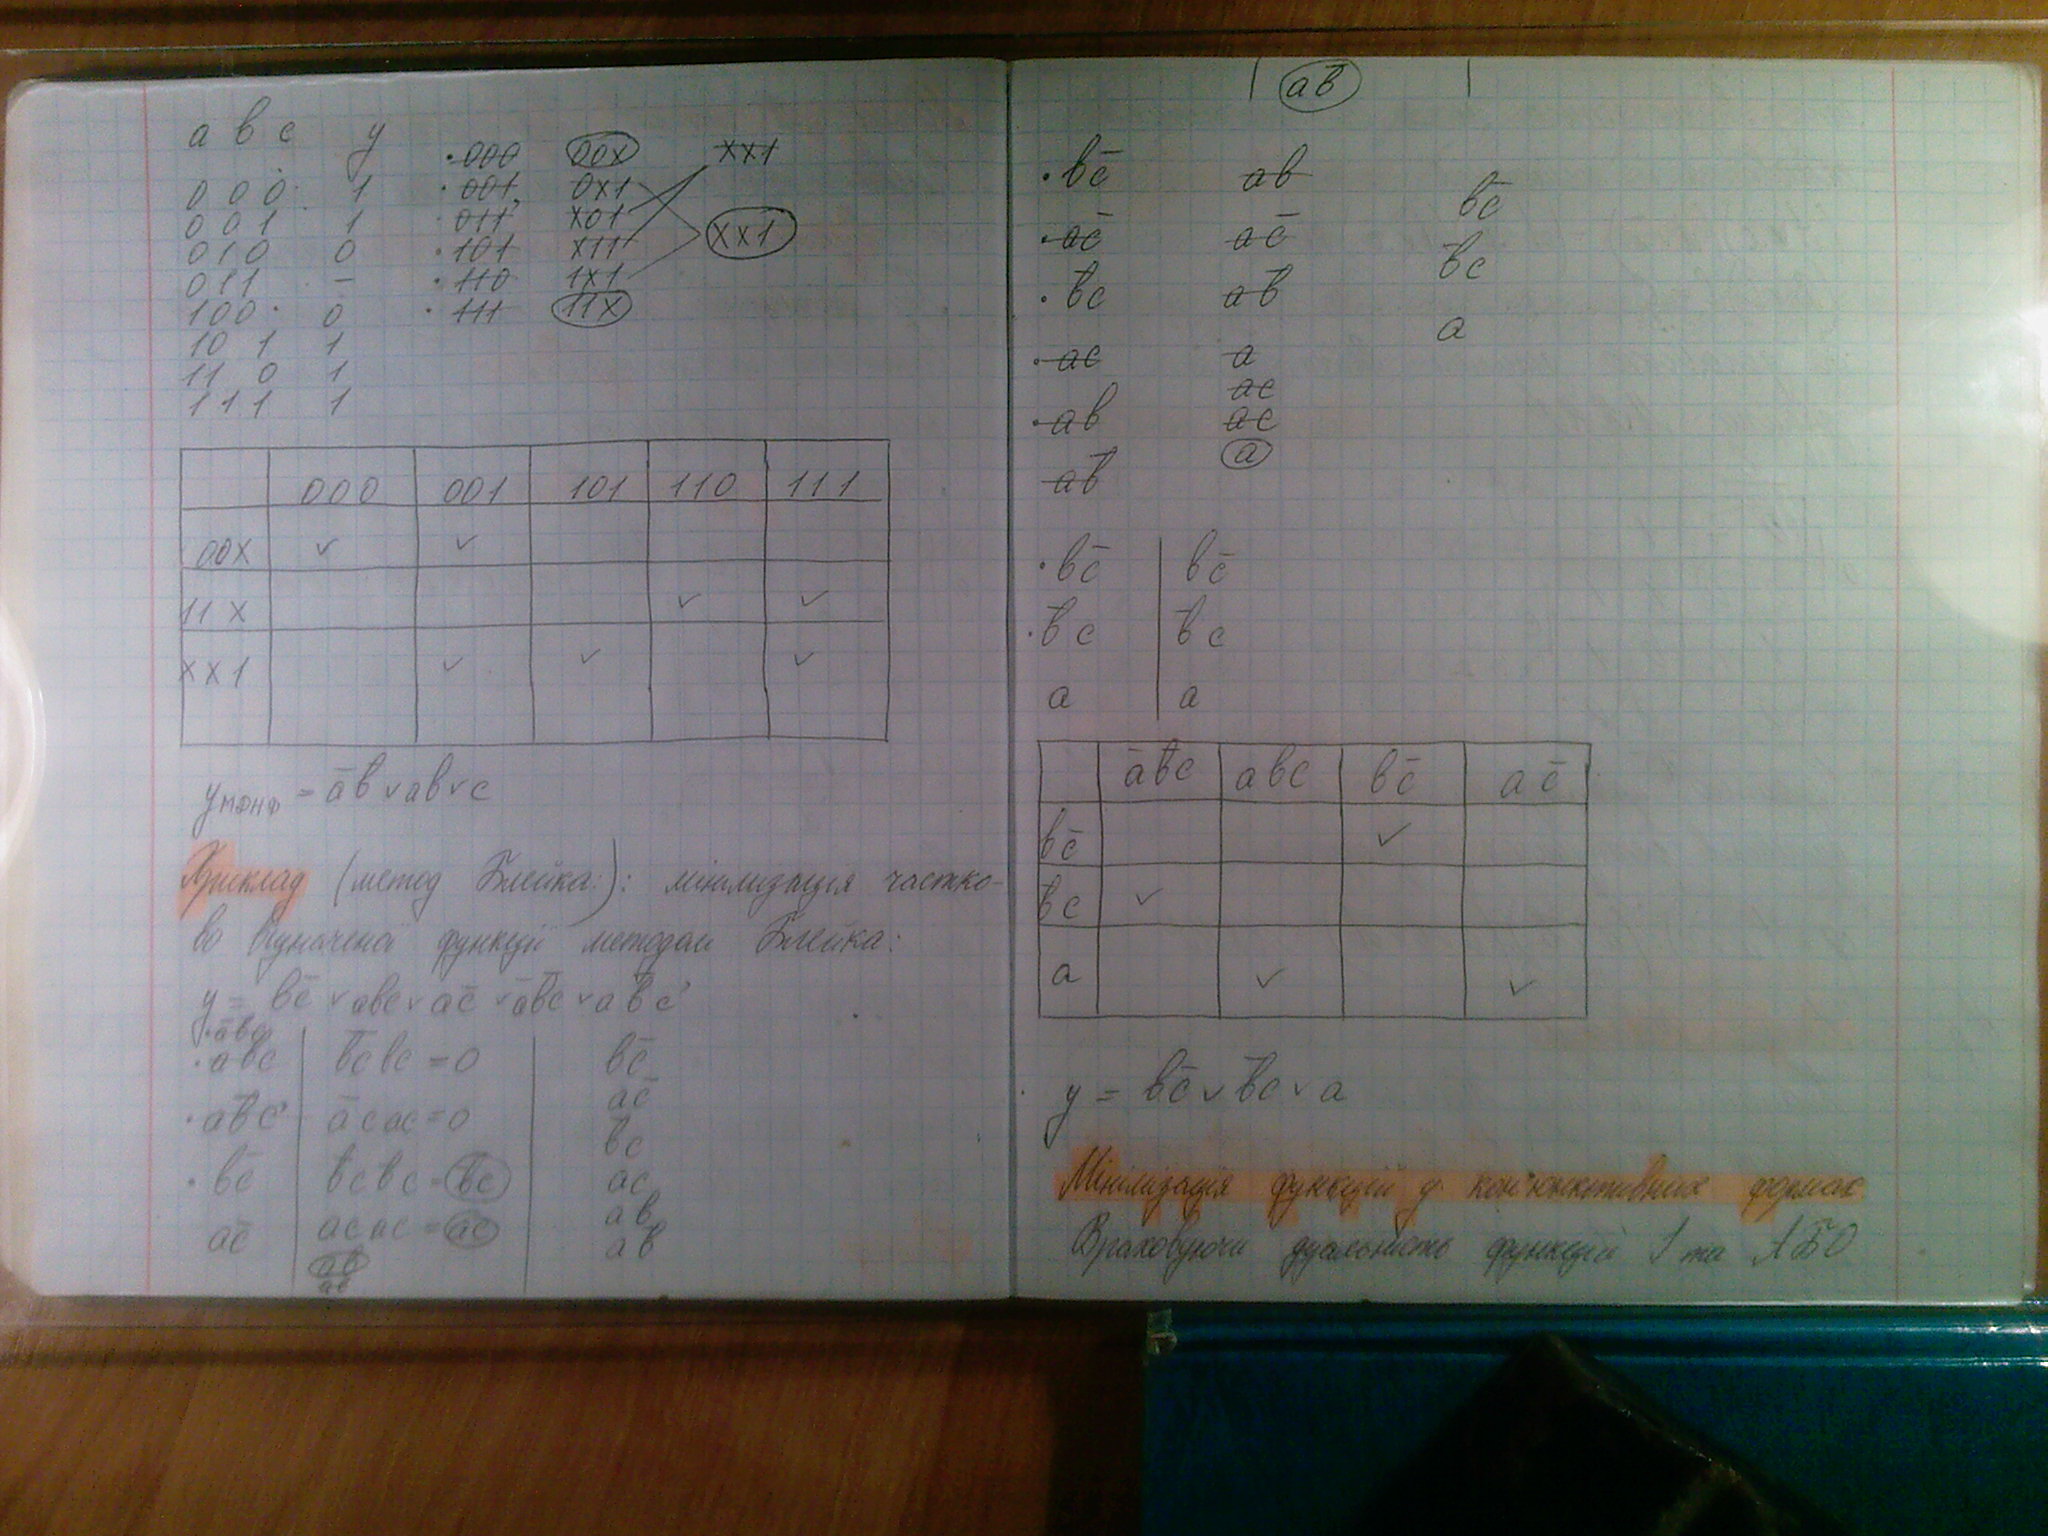 a b c y
0 0 0 1
0 0 1 1
0 1 0 0
0 1 1 –
1 0 0 0
1 0 1 1
1 1 0 1
1 1 1 1
·000 00x xx1
·001 0x1
·011 x01 xx1
·101 x11
·110 1x1
·111 11x
000 001 101 110 111
00x ✓ ✓
11x ✓ ✓
xx1 ✓ ✓ ✓
y мднф = a̅b̅ ∨ ab ∨ c
Приклад (метод Блейка): мінімізація частко-
во визначеної функції методом Блейка:
y = bc̅ ∨ abc ∨ ac̅ ∨ a̅b̅c ∨ ab̅c
bc̅
ac̅
b̅c
ac
ab
ab̅
ab̅
·bc̅ ab bc̅
·ac̅ ac̅ b̅c
·b̅c ab̅ a
·ac a
·ab ac
ab̅ ac
a
·bc̅ | bc̅
·b̅c | b̅c
a | a
a̅b̅c abc bc̅ ac̅
bc̅ ✓
b̅c ✓
a ✓ ✓
y = bc̅ ∨ b̅c ∨ a
Мінімізація функцій у кон'юнктивних формах
Враховуючи дуальність функцій І та АБО